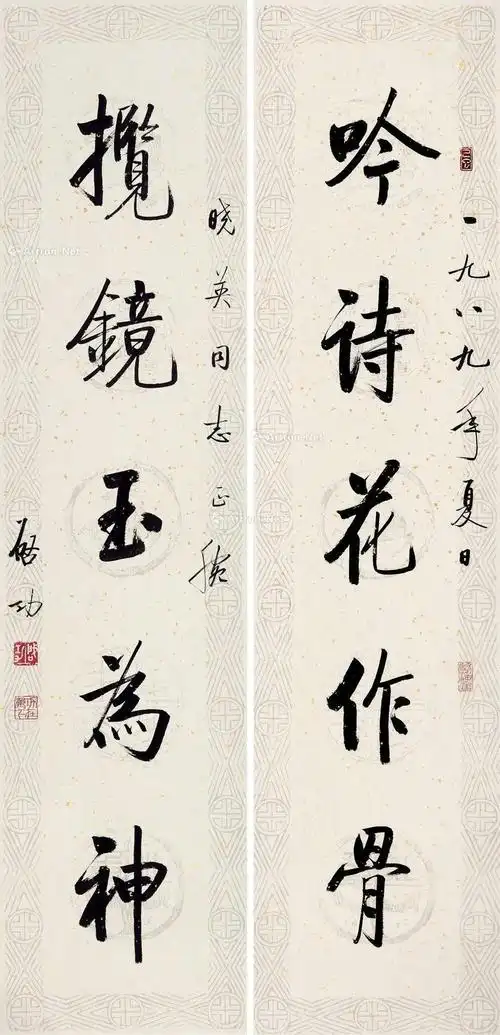 吟诗花作骨
一九八九年夏日
揽鏡玉為神
晓英同志正腕
启功